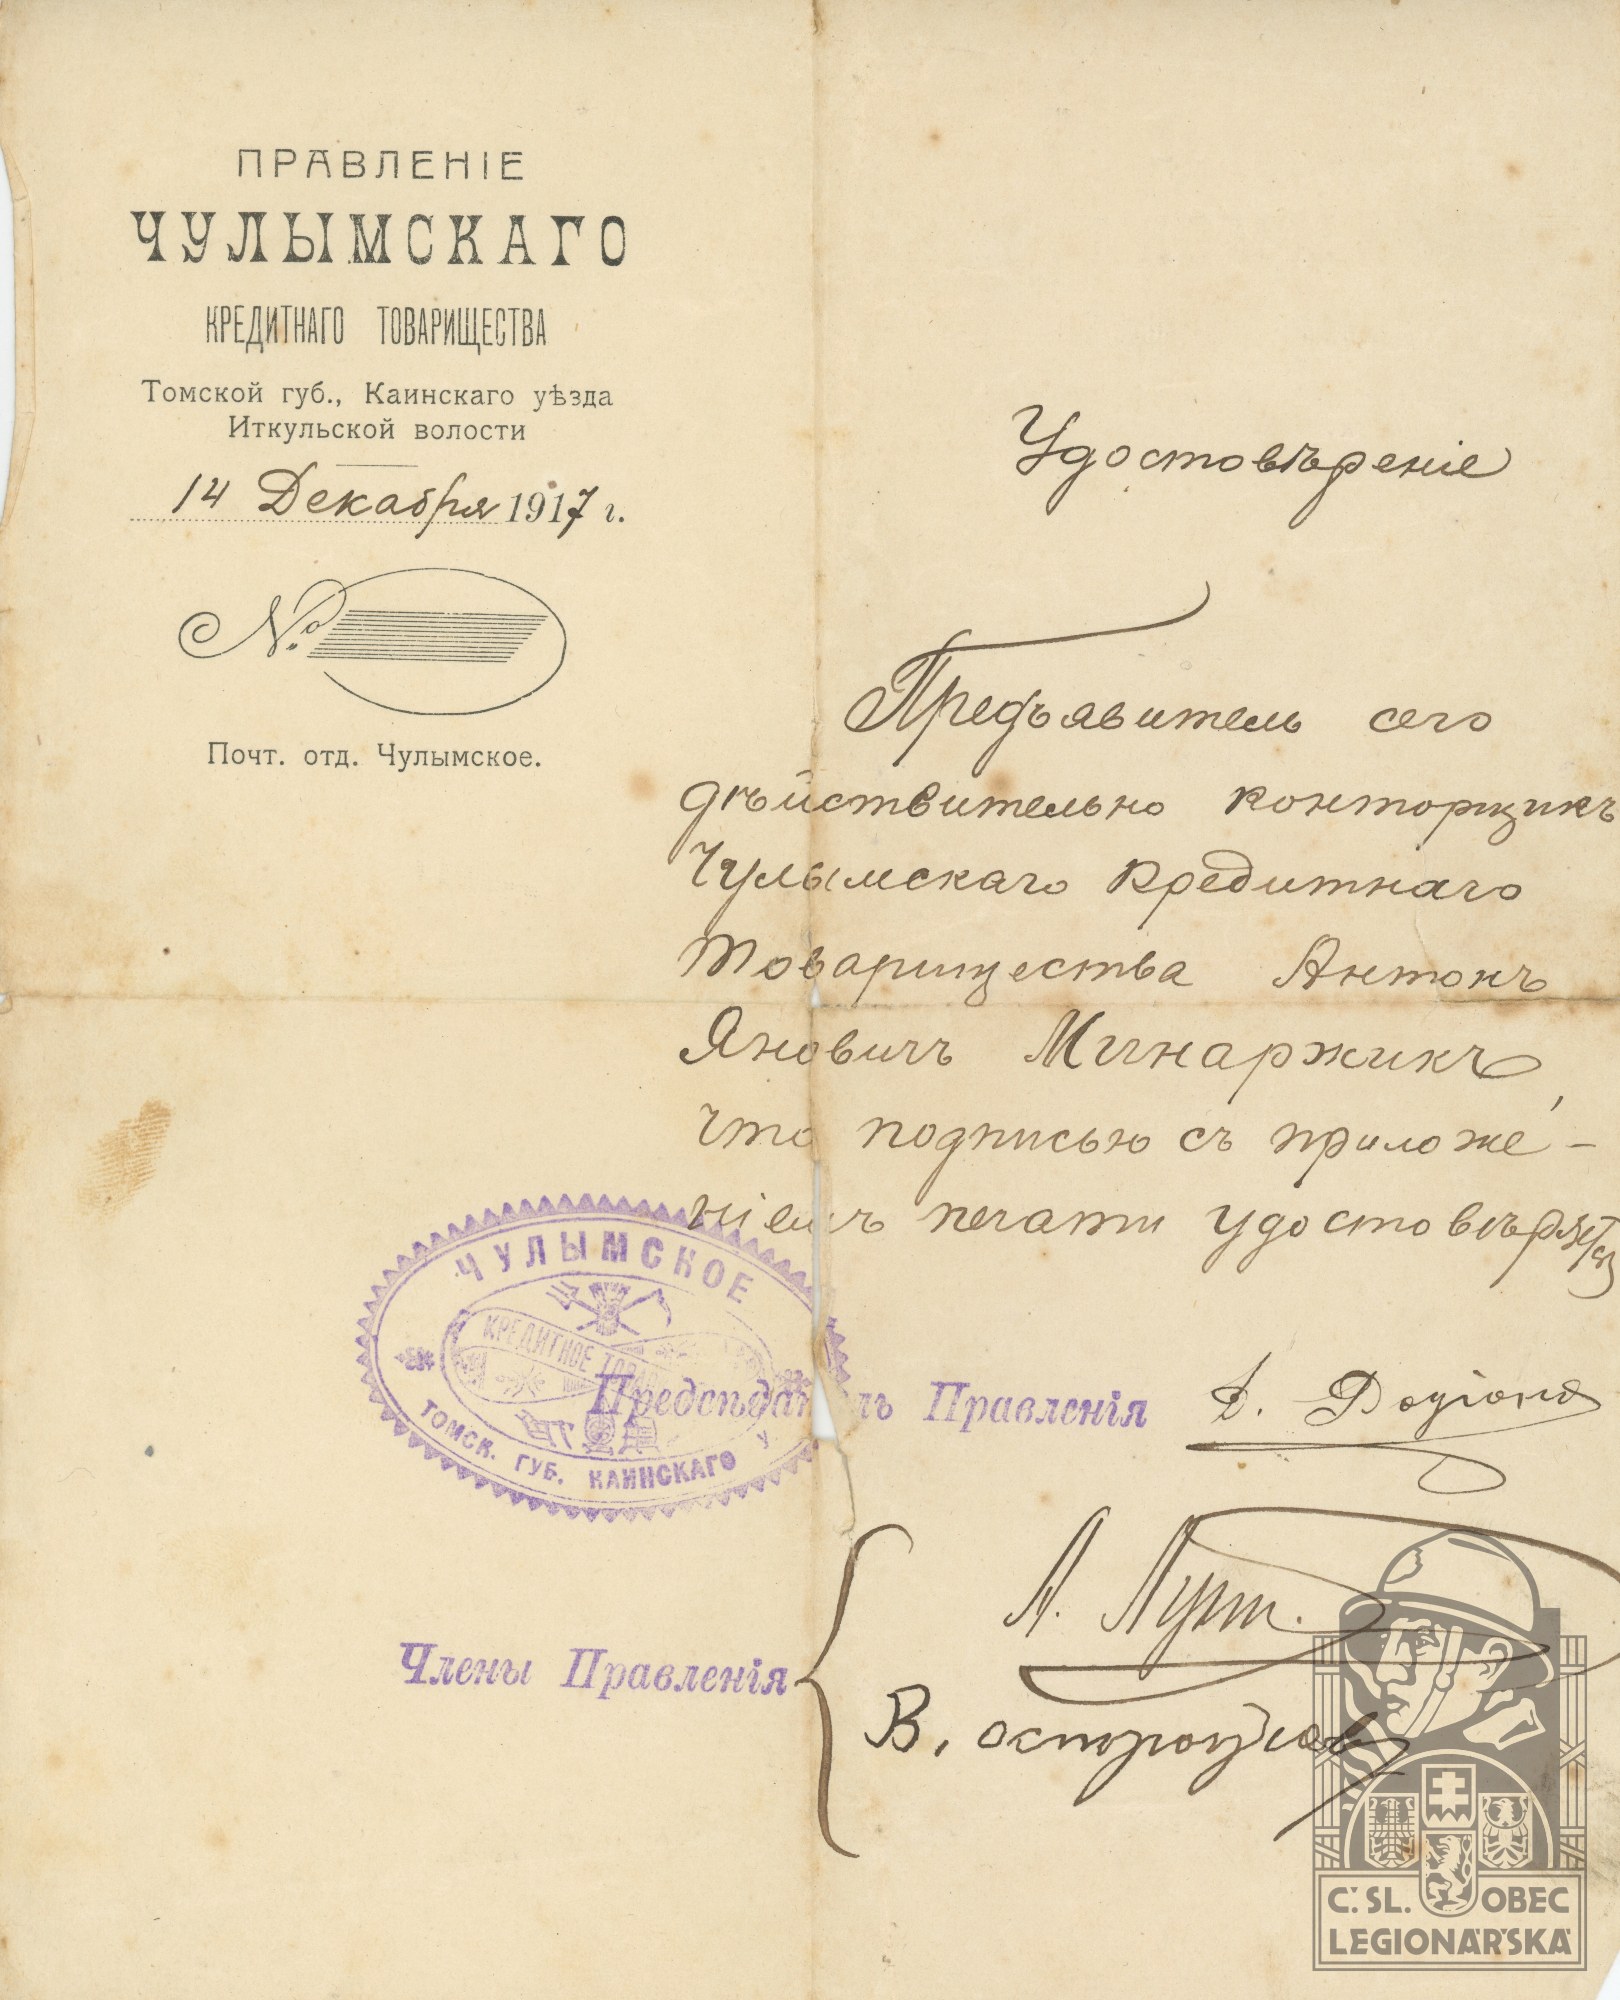 ПРАВЛЕНІЕ
ЧУЛЫМСКАГО
КРЕДИТНАГО ТОВАРИЩЕСТВА
Томской губ., Каинскаго уѣзда
Иткульской волости
14 Декабря 1917 г.
№
Почт. отд. Чулымское.
Удостовѣреніе
Предъявитель сего
дѣйствительно конторщикъ
Чулымскаго Кредитнаго
Товарищества Антонъ
Яновичъ Минаржикъ,
что подписью съ приложе-
ніемъ печати удостовѣряется
ЧУЛЫМСКОЕ
КРЕДИТНОЕ ТОВАР
ТОМСК. ГУБ. КАИНСКАГО У
Предсѣдатель Правленія
Члены Правленія
В.
Č. SL. OBEC
LEGIONÁŘSKÁ